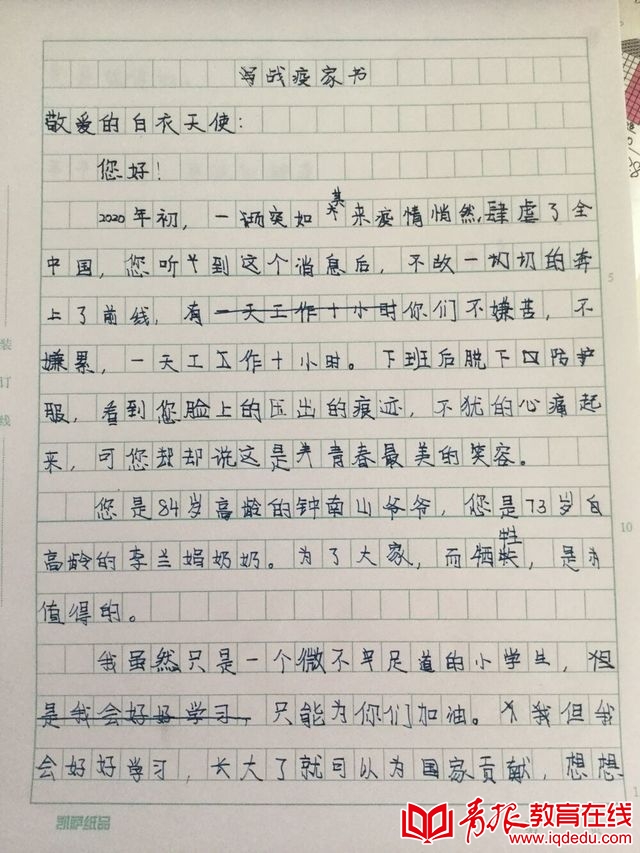 写战疫家书
敬爱的白衣天使：
您好！
2020年初，一场突如其来疫情悄然肆虐了全
中国，您听到这个消息后，不故一切切的奔
上了前线，有一天工作十小时你们不嫌苦，不
嫌累，一天工作十小时。下班后脱下防护
服，看到您脸上的压出的痕迹，不犹的心痛起
来，可您却却说这是青春最美的笑容。
您是84岁高龄的钟南山爷爷，您是73岁
高龄的李兰娟奶奶。为了大家，而牺牲，是
值得的。
我虽然只是一个微不足道的小学生，但
是我会好好学习，只能为你们加油。我但我
会好好学习，长大了就可以为国家贡献，想想
5
10
装
订
线
凯萨纸品
青报教育在线
www.iqdedu.com